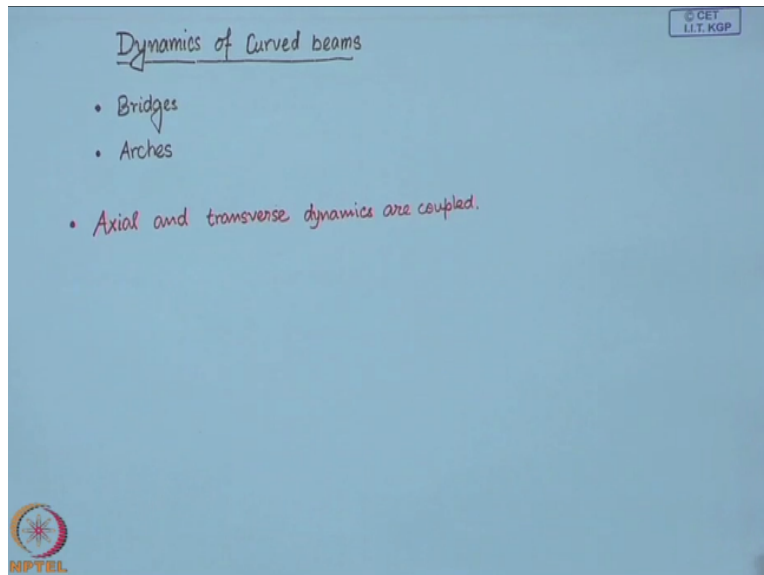 © CET
I.I.T. KGP
Dynamics of Curved beams
• Bridges
• Arches
• Axial and transverse dynamics are coupled.
NPTEL